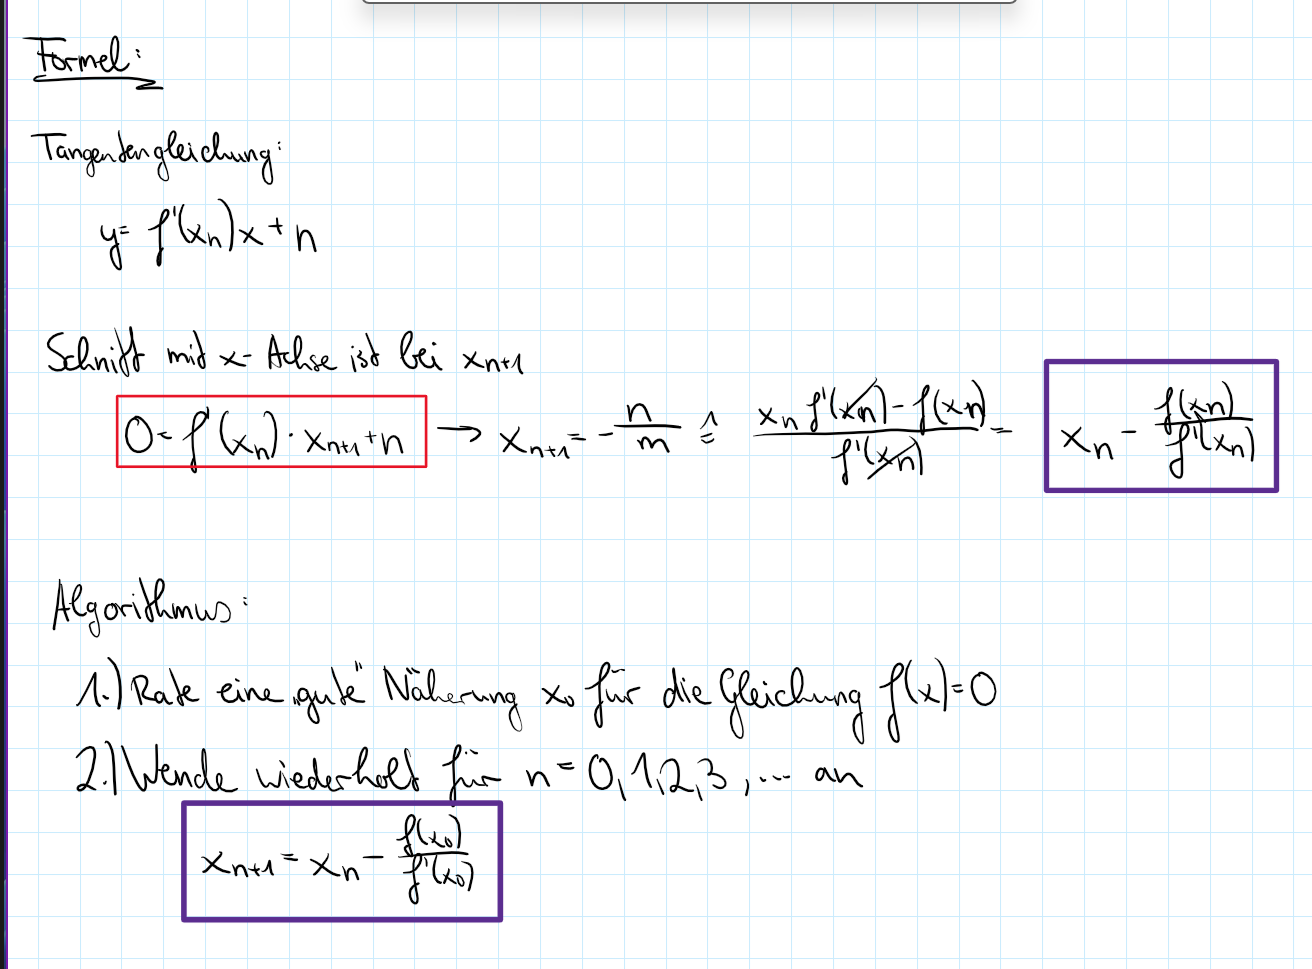 Formel:
Tangentengleichung:
y = f'(xₙ)x + n
Schnitt mit x-Achse ist bei xₙ₊₁
0 = f'(xₙ) · xₙ₊₁ + n → xₙ₊₁ = - n/m ≙ (xₙ f'(xₙ) - f(xₙ))/f'(xₙ) = xₙ - f(xₙ)/f'(xₙ)
Algorithmus:
1.) Rate eine „gute" Näherung x₀ für die Gleichung f(x) = 0
2.) Wende wiederholt für n = 0, 1, 2, 3, ... an
xₙ₊₁ = xₙ - f(x₀)/f'(x₀)